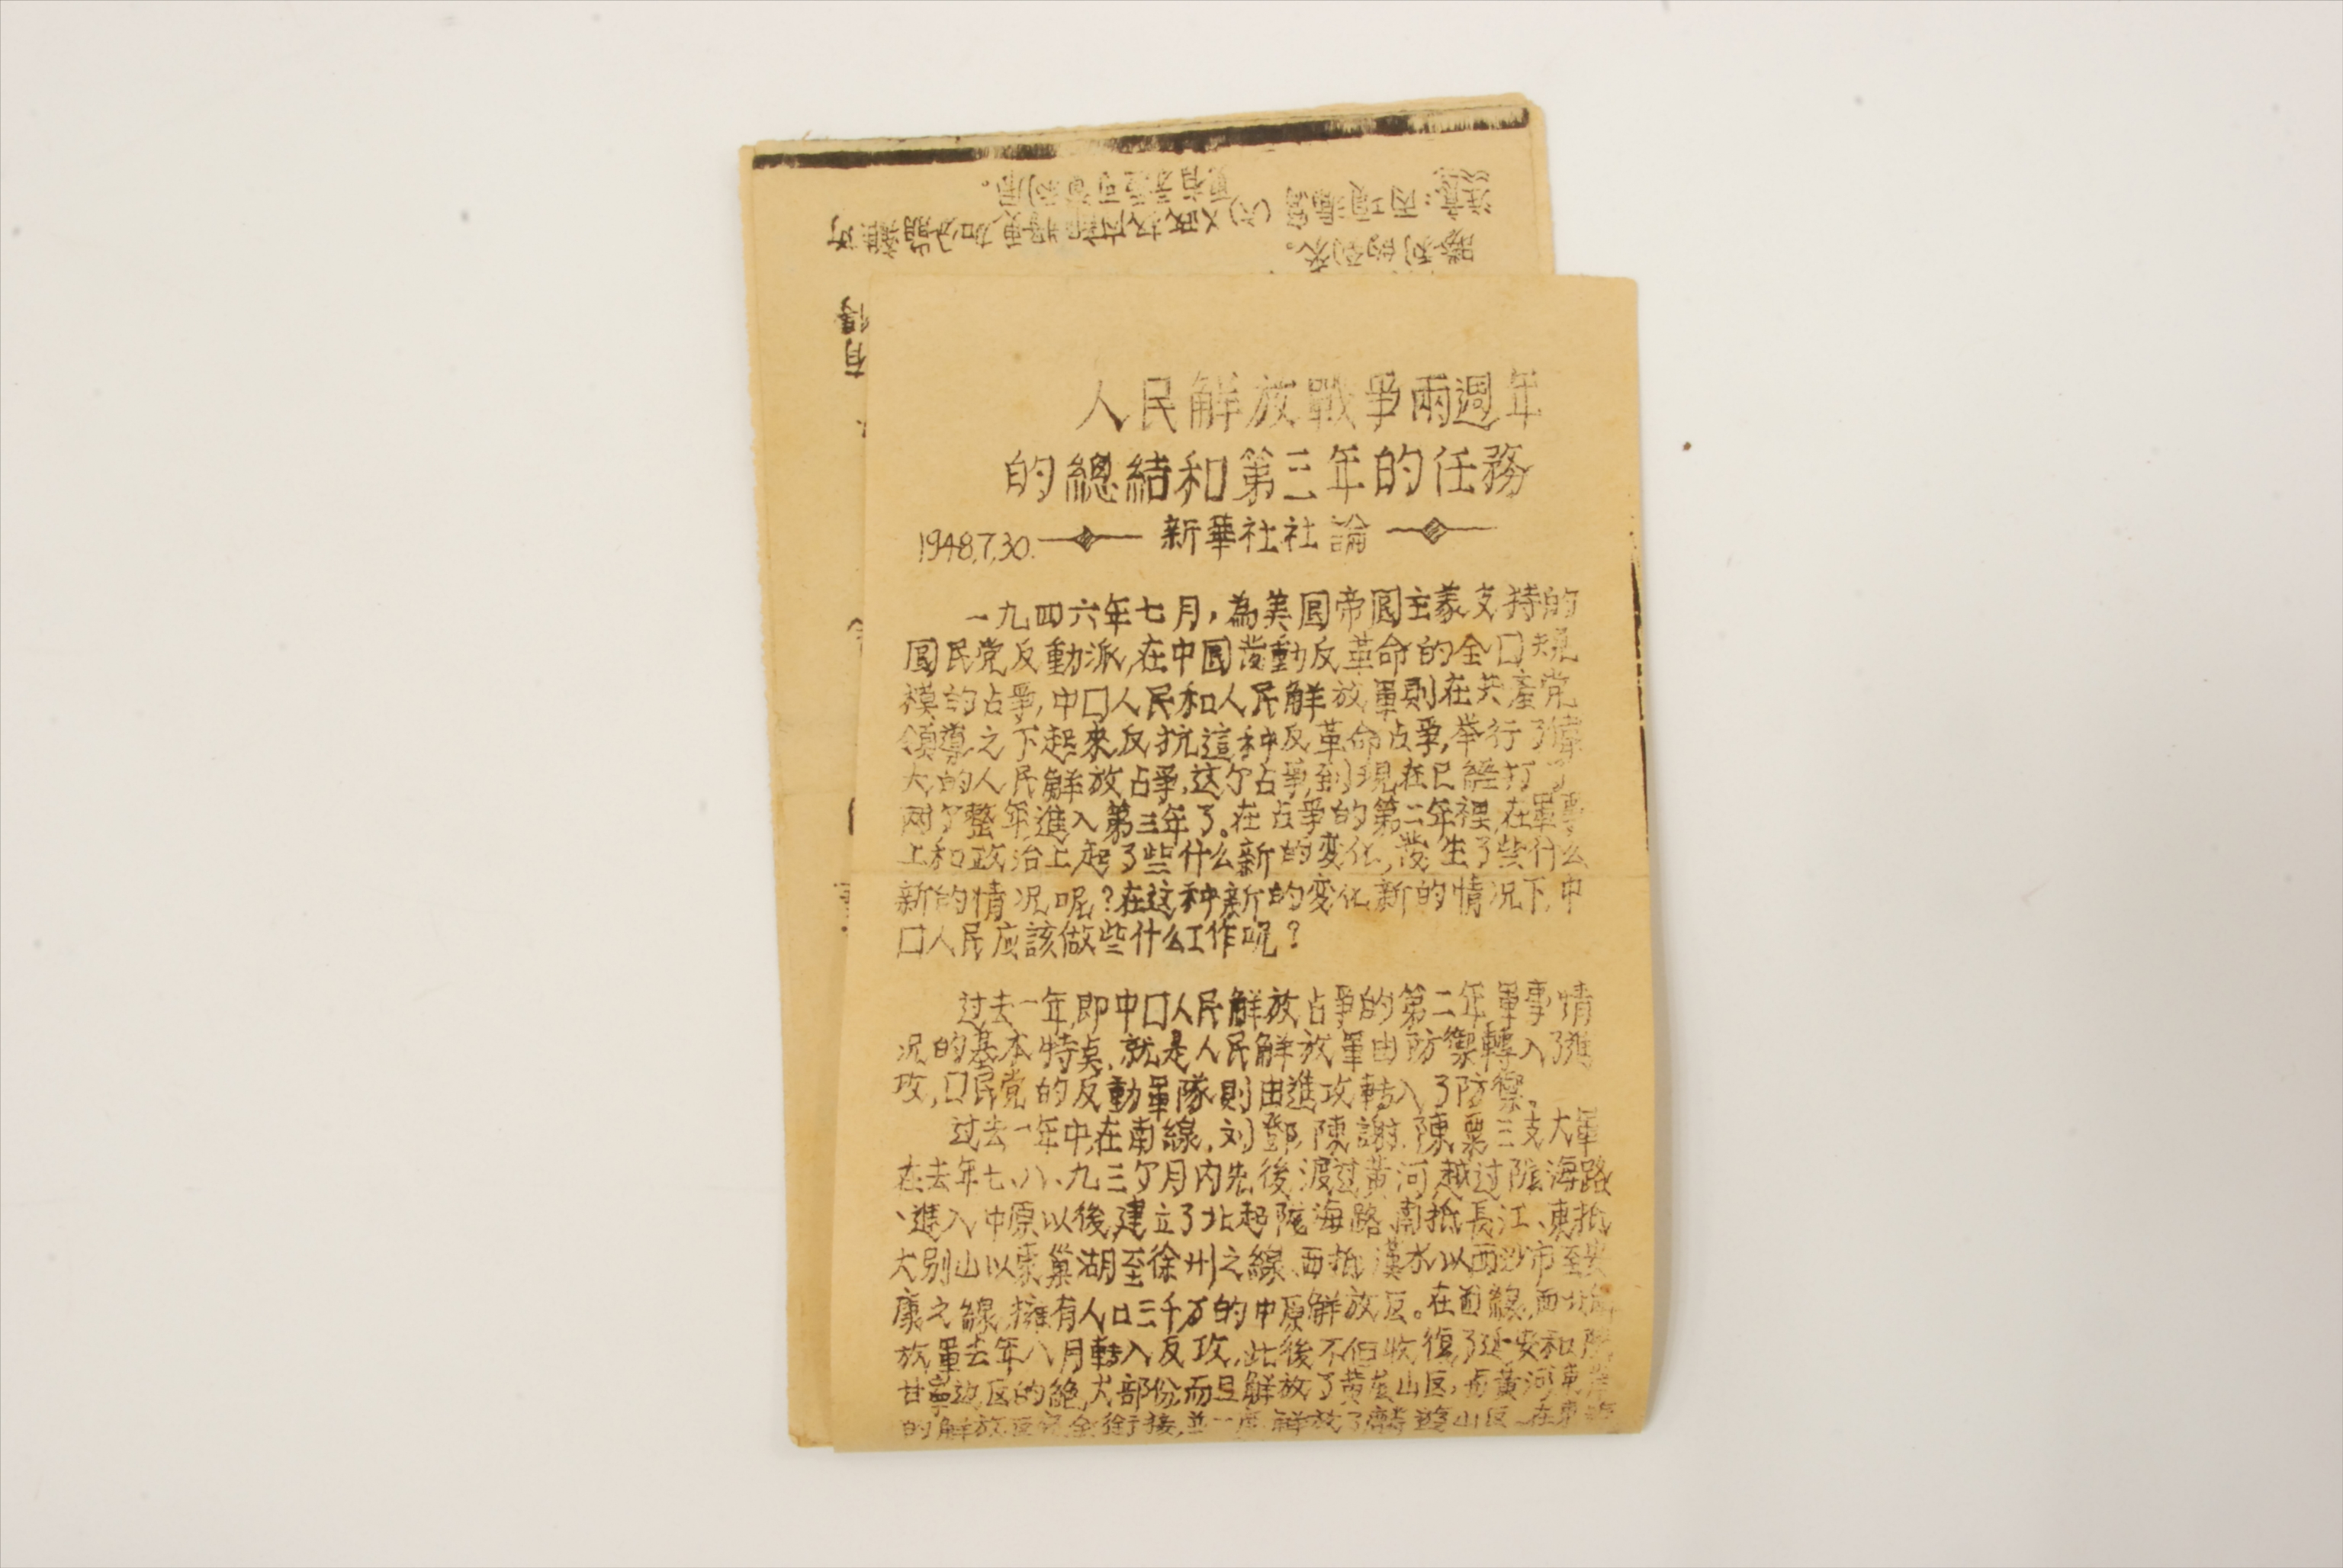 人民解放戰爭兩週年
的總結和第三年的任務
1948.7.30. 新華社社論
一九四六年七月，為美國帝國主義支持的
國民党反動派,在中國發動反革命的全口規
模的占爭,中口人民和人民解放軍則在共產党
領導之下起來反抗這种反革命占爭,举行了偉
大的人民解放占爭,这个占爭到現在已經打了
兩个整年進入第三年了。在占爭的第二年裡,在軍事
上和政治上起了些什么新的変化,發生了些什么
新的情况呢?在这种新的変化新的情况下,中
口人民应該做些什么工作呢?
过去一年,即中口人民解放占爭的第二年,軍事情
况的基本特点,就是人民解放軍由防禦轉入了進
攻,口民党的反動軍隊則由進攻轉入了防禦。
过去一年中,在南線,刘鄧、陳謝、陳粟三支大軍
在去年七、八、九三个月內先後渡过黃河越过隴海路
、進入中原以後,建立了北起隴海路、南抵長江、東抵
大别山以東巢湖至徐州之線、西抵漢水以西沙市至安
康之線,擁有人口三千万的中原解放区。在西線,西北解
放軍去年八月轉入反攻,此後不但收復了延安和陝
甘寧边区的絕大部份,而且解放了黄龙山区,与黃河東岸
的解放区完全銜接,並一度解放了麟遊山区。在東
注意:丙項
勝利的到來。